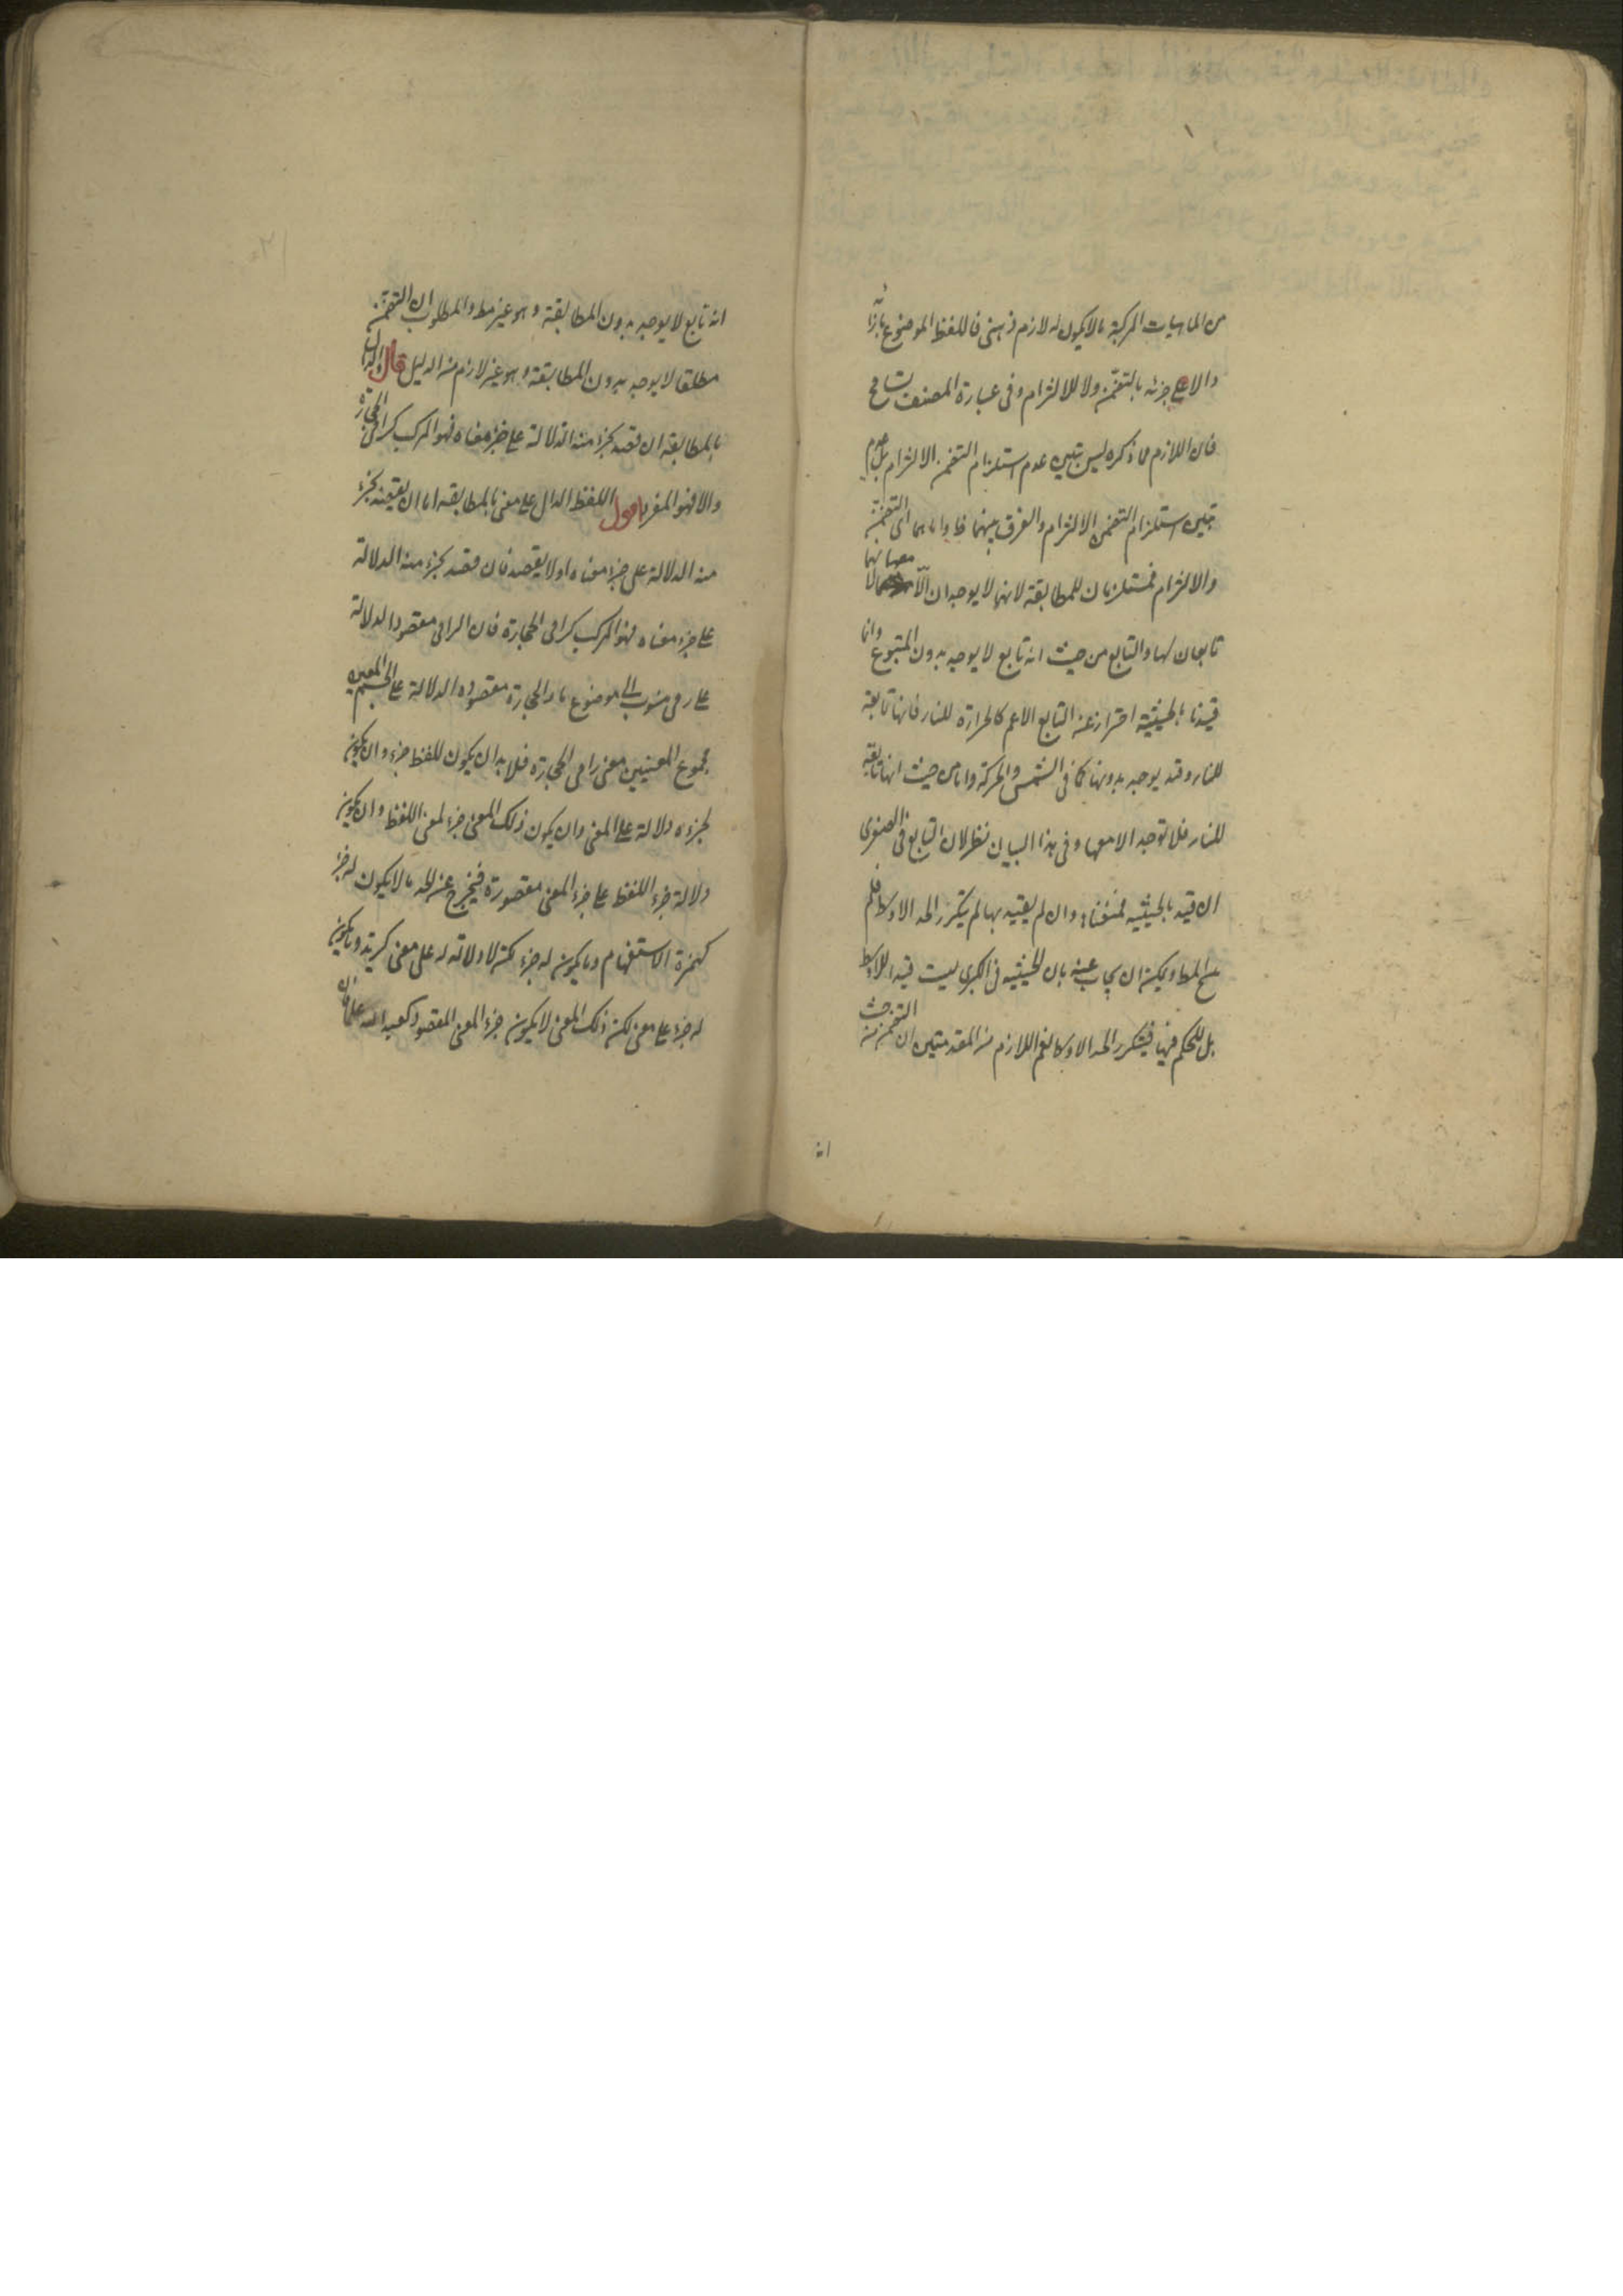 من الماهيات المركبة ما لا يكون له لازم ذهنى فاللفظ الموضوع بازائه
دال على جزئه بالتضمن ولا للالتزام وفى عبارة المصنف تسامح
فان اللازم مما ذكره ليس تبين عدم استلزام التضمن الالتزام بل عدم
تبين استلزام التضمن الالتزام والفرق بينهما ظ واما هما اى التضمن
والالتزام فمستلزمان للمطابقة لانهما لا يوجدان الا معها لانهما
تابعان لها والتابع من حيث انه تابع لا يوجد بدون المتبوع وانما
قيدنا بالحيثية احترازا عن التابع الاعم كالحرارة للنار فانها تابعة
للنار وقد يوجد بدونها كما فى الشمس والحركة واما من حيث انها تابعة
للنار فلا توجد الا معها وفى هذا البيان نظر لان التابع فى الصغرى
ان قيد بالحيثية فمنعناه وان لم يقيد بها لم يتكرر الحد الاوسط فلم
ينتج المط ويمكن ان يجاب عنه بان الحيثية فى الكبرى ليست قيدا للاوسط
بل للحكم فيها فيتكرر الحد الاوسط نعم اللازم من المقدمتين ان التضمن من حيث
انه
انه تابع لا يوجد بدون المطابقة وهو غير مط والمطلوب ان التضمن
مطلقا لا يوجد بدون المطابقة وهو غير لازم من الدليل قال والدال
بالمطابقة ان قصد بجزء منه الدلالة على جزء معناه فهو المركب كرامى الحجارة
والا فهو المفرد اقول اللفظ الدال على معنى بالمطابقة اما ان يقصد بجزء
منه الدلالة على جزء معناه او لا يقصد فان قصد بجزء منه الدلالة
على جزء معناه فهو المركب كرامى الحجارة فان الرامى مقصود الدلالة
على رمى منسوب الى موضوع ما والحجارة مقصوده الدلالة على الجسم المعين
مجموع المعنيين معنى رامى الحجارة فلا بد ان يكون للفظ جزء وان يكون
لجزءه دلالة على المعنى وان يكون ذلك المعنى جزء لمعنى اللفظ وان يكون
دلالة جزء اللفظ على جزء المعنى مقصورة فيخرج عن الحد ما لا يكون له جزء
كهمزة الاستفهام وما يكون له جزء لكن لا دلالة له على معنى كزيد وما يكون
له جزء على معنى لكن ذلك المعنى لا يكون جزء المعنى المقصود كعبد الله علما فان